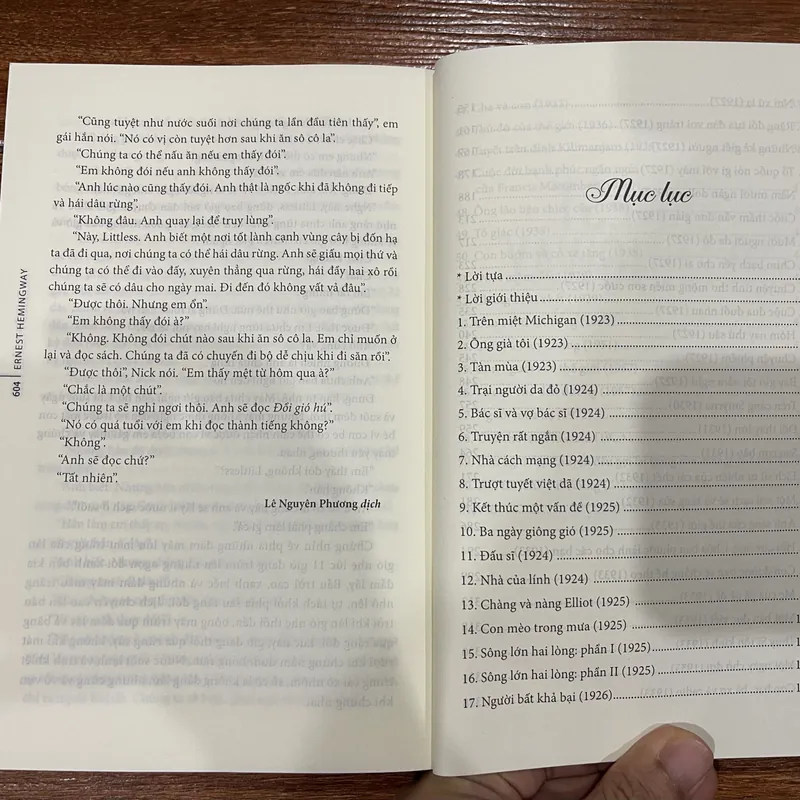 "Cũng tuyệt như nước suối nơi chúng ta lần đầu tiên thấy", em
gái hắn nói. "Nó có vị còn tuyệt hơn sau khi ăn sô cô la".
"Chúng ta có thể nấu ăn nếu em thấy đói".
"Em không đói nếu anh không thấy đói".
"Anh lúc nào cũng thấy đói. Anh thật là ngốc khi đã không đi tiếp
và hái dâu rừng".
"Không đâu. Anh quay lại để truy lùng".
"Này, Littless. Anh biết một nơi tốt lành cạnh vùng cây bị đốn hạ
ta đã đi qua, nơi chúng ta có thể hái dâu rừng. Anh sẽ giấu mọi thứ và
chúng ta có thể đi vào đấy, xuyên thẳng qua rừng, hái đầy hai xô rồi
chúng ta sẽ có dâu cho ngày mai. Đi đến đó không vất vả đâu".
"Được thôi. Nhưng em ổn".
"Em không thấy đói à?"
"Không. Không đói chút nào sau khi ăn sô cô la. Em chỉ muốn ở
lại và đọc sách. Chúng ta đã có chuyến đi bộ dễ chịu khi đi săn rồi".
"Được thôi", Nick nói. "Em thấy mệt từ hôm qua à?"
"Chắc là một chút".
"Chúng ta sẽ nghỉ ngơi thôi. Anh sẽ đọc Đồi gió hú".
"Nó có quá tuổi với em khi đọc thành tiếng không?"
"Không".
"Anh sẽ đọc chứ?"
"Tất nhiên".
Lê Nguyên Phương dịch
604 | ERNEST HEMINGWAY
Mục lục
* Lời tựa
* Lời giới thiệu
1. Trên miệt Michigan (1923)
2. Ông già tôi (1923)
3. Tàn mùa (1923)
4. Trại người da đỏ (1924)
5. Bác sĩ và vợ bác sĩ (1924)
6. Truyện rất ngắn (1924)
7. Nhà cách mạng (1924)
8. Trượt tuyết việt dã (1924)
9. Kết thúc một vấn đề (1925)
10. Ba ngày giông gió (1925)
11. Đấu sĩ (1924)
12. Nhà của lính (1924)
13. Chàng và nàng Elliot (1925)
14. Con mèo trong mưa (1925)
15. Sông lớn hai lòng: phần I (1925)
16. Sông lớn hai lòng: phần II (1925)
17. Người bất khả bại (1926)